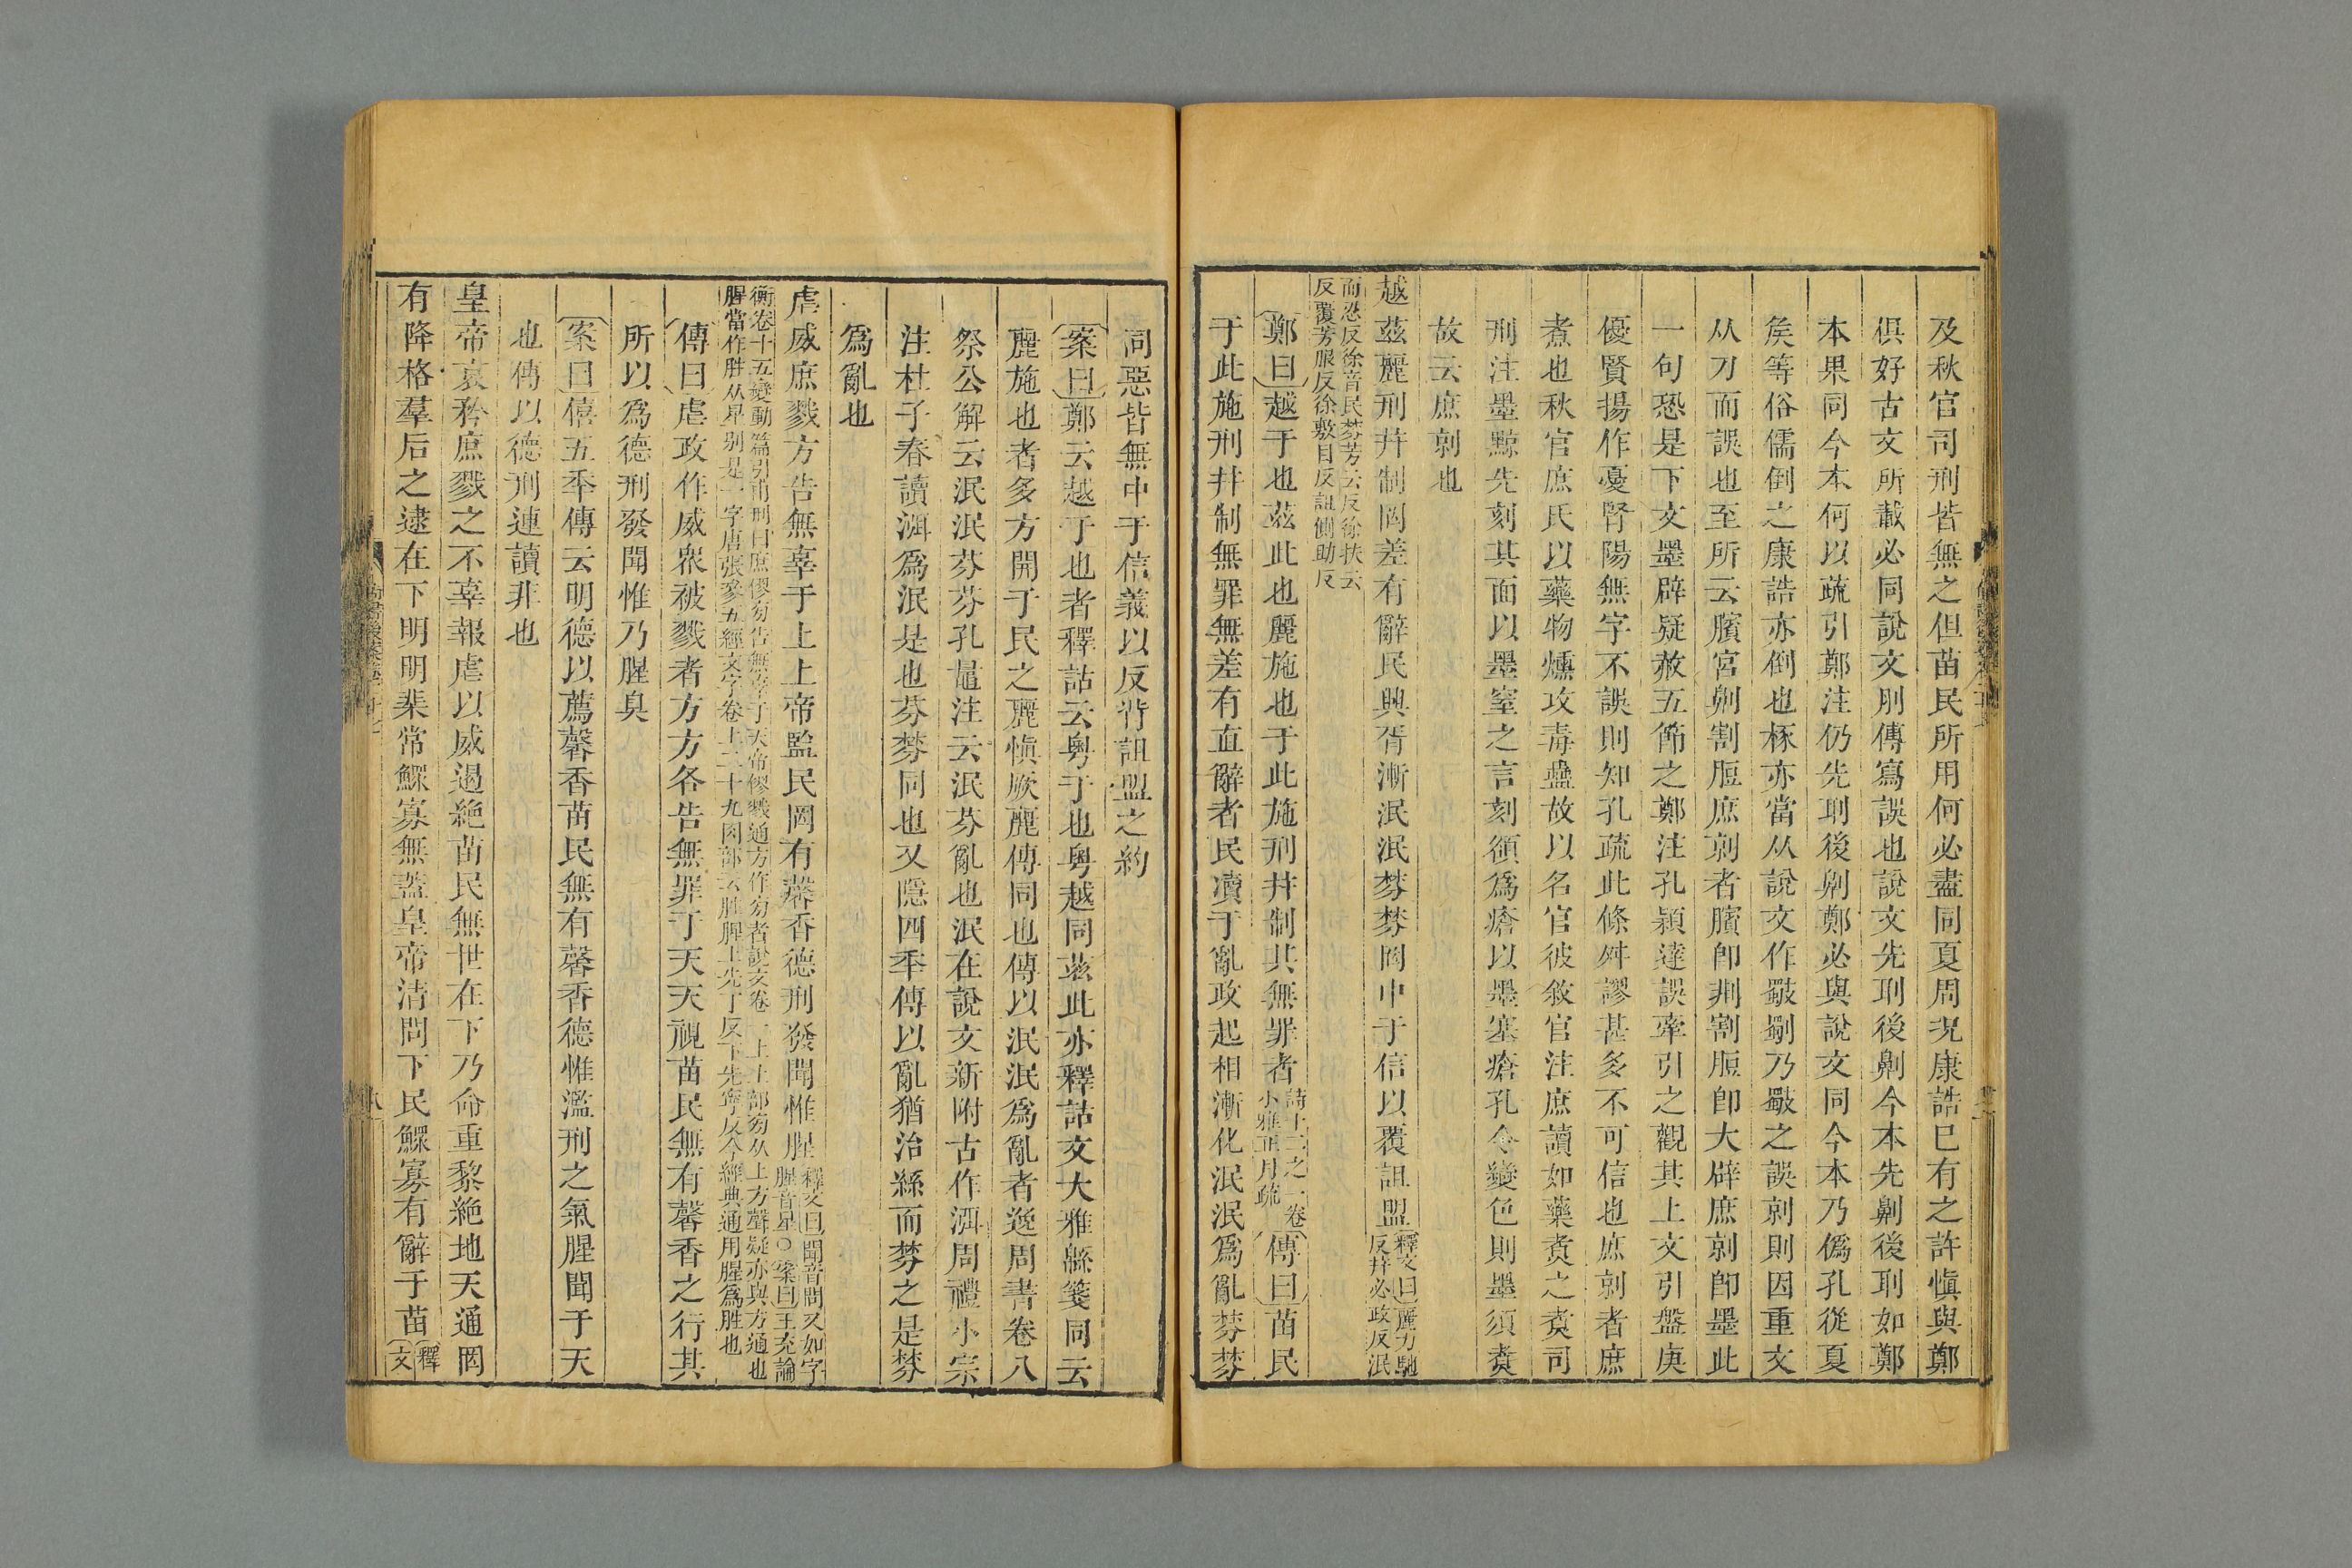 及秋官司刑皆無之但苗民所用何必盡同夏周況康誥已有之許愼與鄭
俱好古文所載必同說文刖傳寫誤也說文先刵後劓今本先劓後刵如鄭
本果同今本何以疏引鄭注仍先刵後劓鄭必與說文同今本乃僞孔從夏
矦等俗儒倒之康誥亦倒也椓亦當从說文作斀劅乃斀之誤剠則因重文
从刀而誤也至所云臏宮劓割脰庶剠者臏卽刖割脰卽大辟庶剠卽墨此
一句恐是下文墨辟疑赦五節之鄭注孔穎達誤牽引之觀其上文引盤庚
優賢揚作憂腎陽無字不誤則知孔疏此條舛謬甚多不可信也庶剠者庶
煮也秋官庶氏以藥物燻攻毒蠱故以名官彼敘官注庶讀如藥煑之煑司
刑注墨黥先刻其面以墨窒之言刻頟爲瘡以墨塞瘡孔令變色則墨須煑
故云庶剠也
越茲麗刑幷制罔差有辭民興胥漸泯泯棼棼罔中于信以覆詛盟釋文曰麗力馳
反幷必政反泯
面忍反徐音民棼芳云反徐扶云
反覆芳服反徐敷目反詛側助反
鄭曰越于也茲此也麗施也于此施刑幷制其無罪者詩十二之一卷
小雅正月疏傳曰苗民
于此施刑幷制無罪無差有直辭者民瀆于亂政起相漸化泯泯爲亂棼棼
同惡皆無中于信義以反背詛盟之約
案曰鄭云越于也者釋詁云粤于也粤越同茲此亦釋詁文大雅緜箋同云
麗施也者多方開于民之麗愼厥麗傳同也傳以泯泯爲亂者逸周書卷八
祭公解云泯泯芬芬孔鼂注云泯芬亂也泯在說文新附古作湎周禮小宗
注杜子春讀湎爲泯是也芬棼同也又隱四年傳以亂猶治絲而棼之是棼
爲亂也
虐威庶戮方告無辜于上上帝監民罔有馨香德刑發聞惟腥釋文曰聞音問又如字
腥音星○案曰王充論
衡卷十五變動篇引甫刑曰庶僇旁告無辜于天帝僇戮通方作旁者說文卷一上上部旁从上方聲疑亦與方通也
腥當作胜从星别是一字唐張參五經文字卷上二十九肉部云胜腥上先丁反下先定反今經典通用腥爲胜也
傳曰虐政作威眾被戮者方方各告無罪于天天視苗民無有馨香之行其
所以爲德刑發聞惟乃腥臭
案曰僖五年傳云明德以薦馨香苗民無有馨香德惟濫刑之氣腥聞于天
也傳以德刑連讀非也
皇帝哀矜庶戮之不辜報虐以威遏絕苗民無世在下乃命重黎絕地天通罔
有降格羣后之逮在下明明棐常鰥寡無蓋皇帝淸問下民鰥寡有辭于苗釋
文